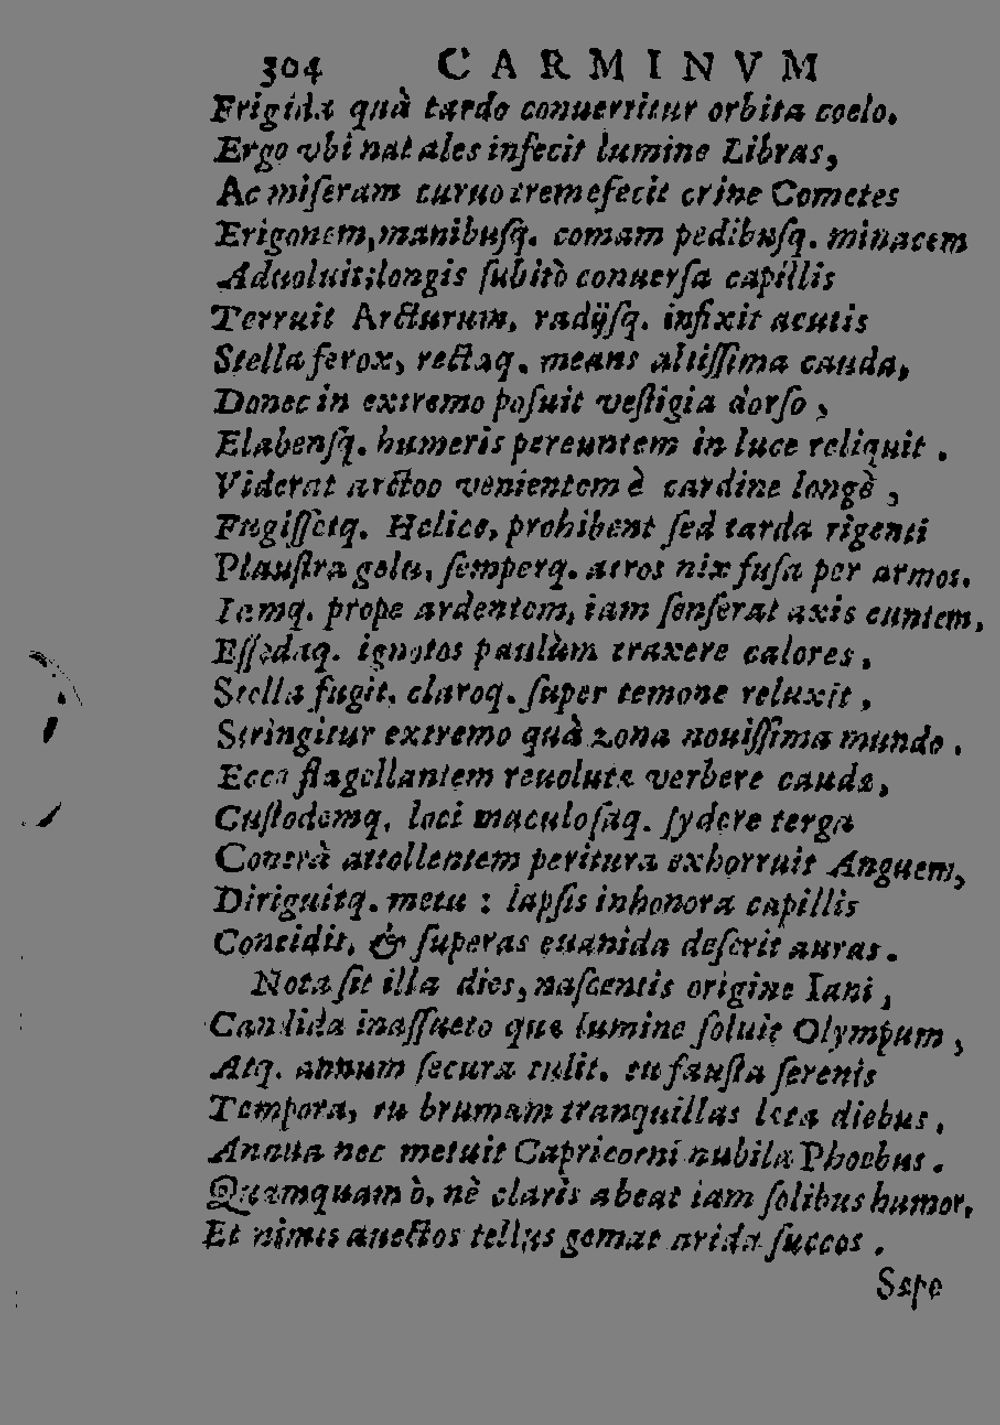 304 CARMINVM
Frigida quà tardo conuertitur orbita coelo.
Ergo vbi natales infecit lumine Libras,
Ac miſeram curuo tremefecit crine Cometes
Erigonem, manibuſq. comam pedibuſq. minacem
Aduoluit; longis ſubitò conuerſa capillis
Terruit Arcturum, radijſq. infixit acutis
Stella ferox, rectaq. means altiſſima cauda,
Donec in extremo poſuit veſtigia dorſo,
Elabenſq. humeris pereuntem in luce reliquit.
Viderat arctoo venientem è cardine longè,
Fugiſſetq. Helice, prohibent ſed tarda rigenti
Plauſtra gelu, ſemperq. atros nix fuſa per armos.
Iamq. prope ardentem, iam ſenſerat axis euntem,
Eſſedaq. ignotos paulùm traxere calores,
Stella fugit, claroq. ſuper temone reluxit,
Stringitur extremo quà zona nouiſſima mundo.
Ecce flagellantem reuolutæ verbere caudæ,
Cuſtodemq. loci maculoſaq. ſydere terga
Contrà attollentem peritura exhorruit Anguem,
Diriguitq. metu : lapſis inhonora capillis
Concidit, & ſuperas euanida deſerit auras.
Nota ſit illa dies, naſcentis origine Iani,
Candida inaſſueto quæ lumine ſoluit Olympum,
Atq. annum ſecura tulit. tu fauſta ſerenis
Tempora, tu brumam tranquillas læta diebus.
Annua nec metuit Capricorni nubila Phoebus.
Quamquam ò, nè claris abeat iam ſolibus humor,
Et nimis auectos tellus gemat arida ſuccos.
Sæpe